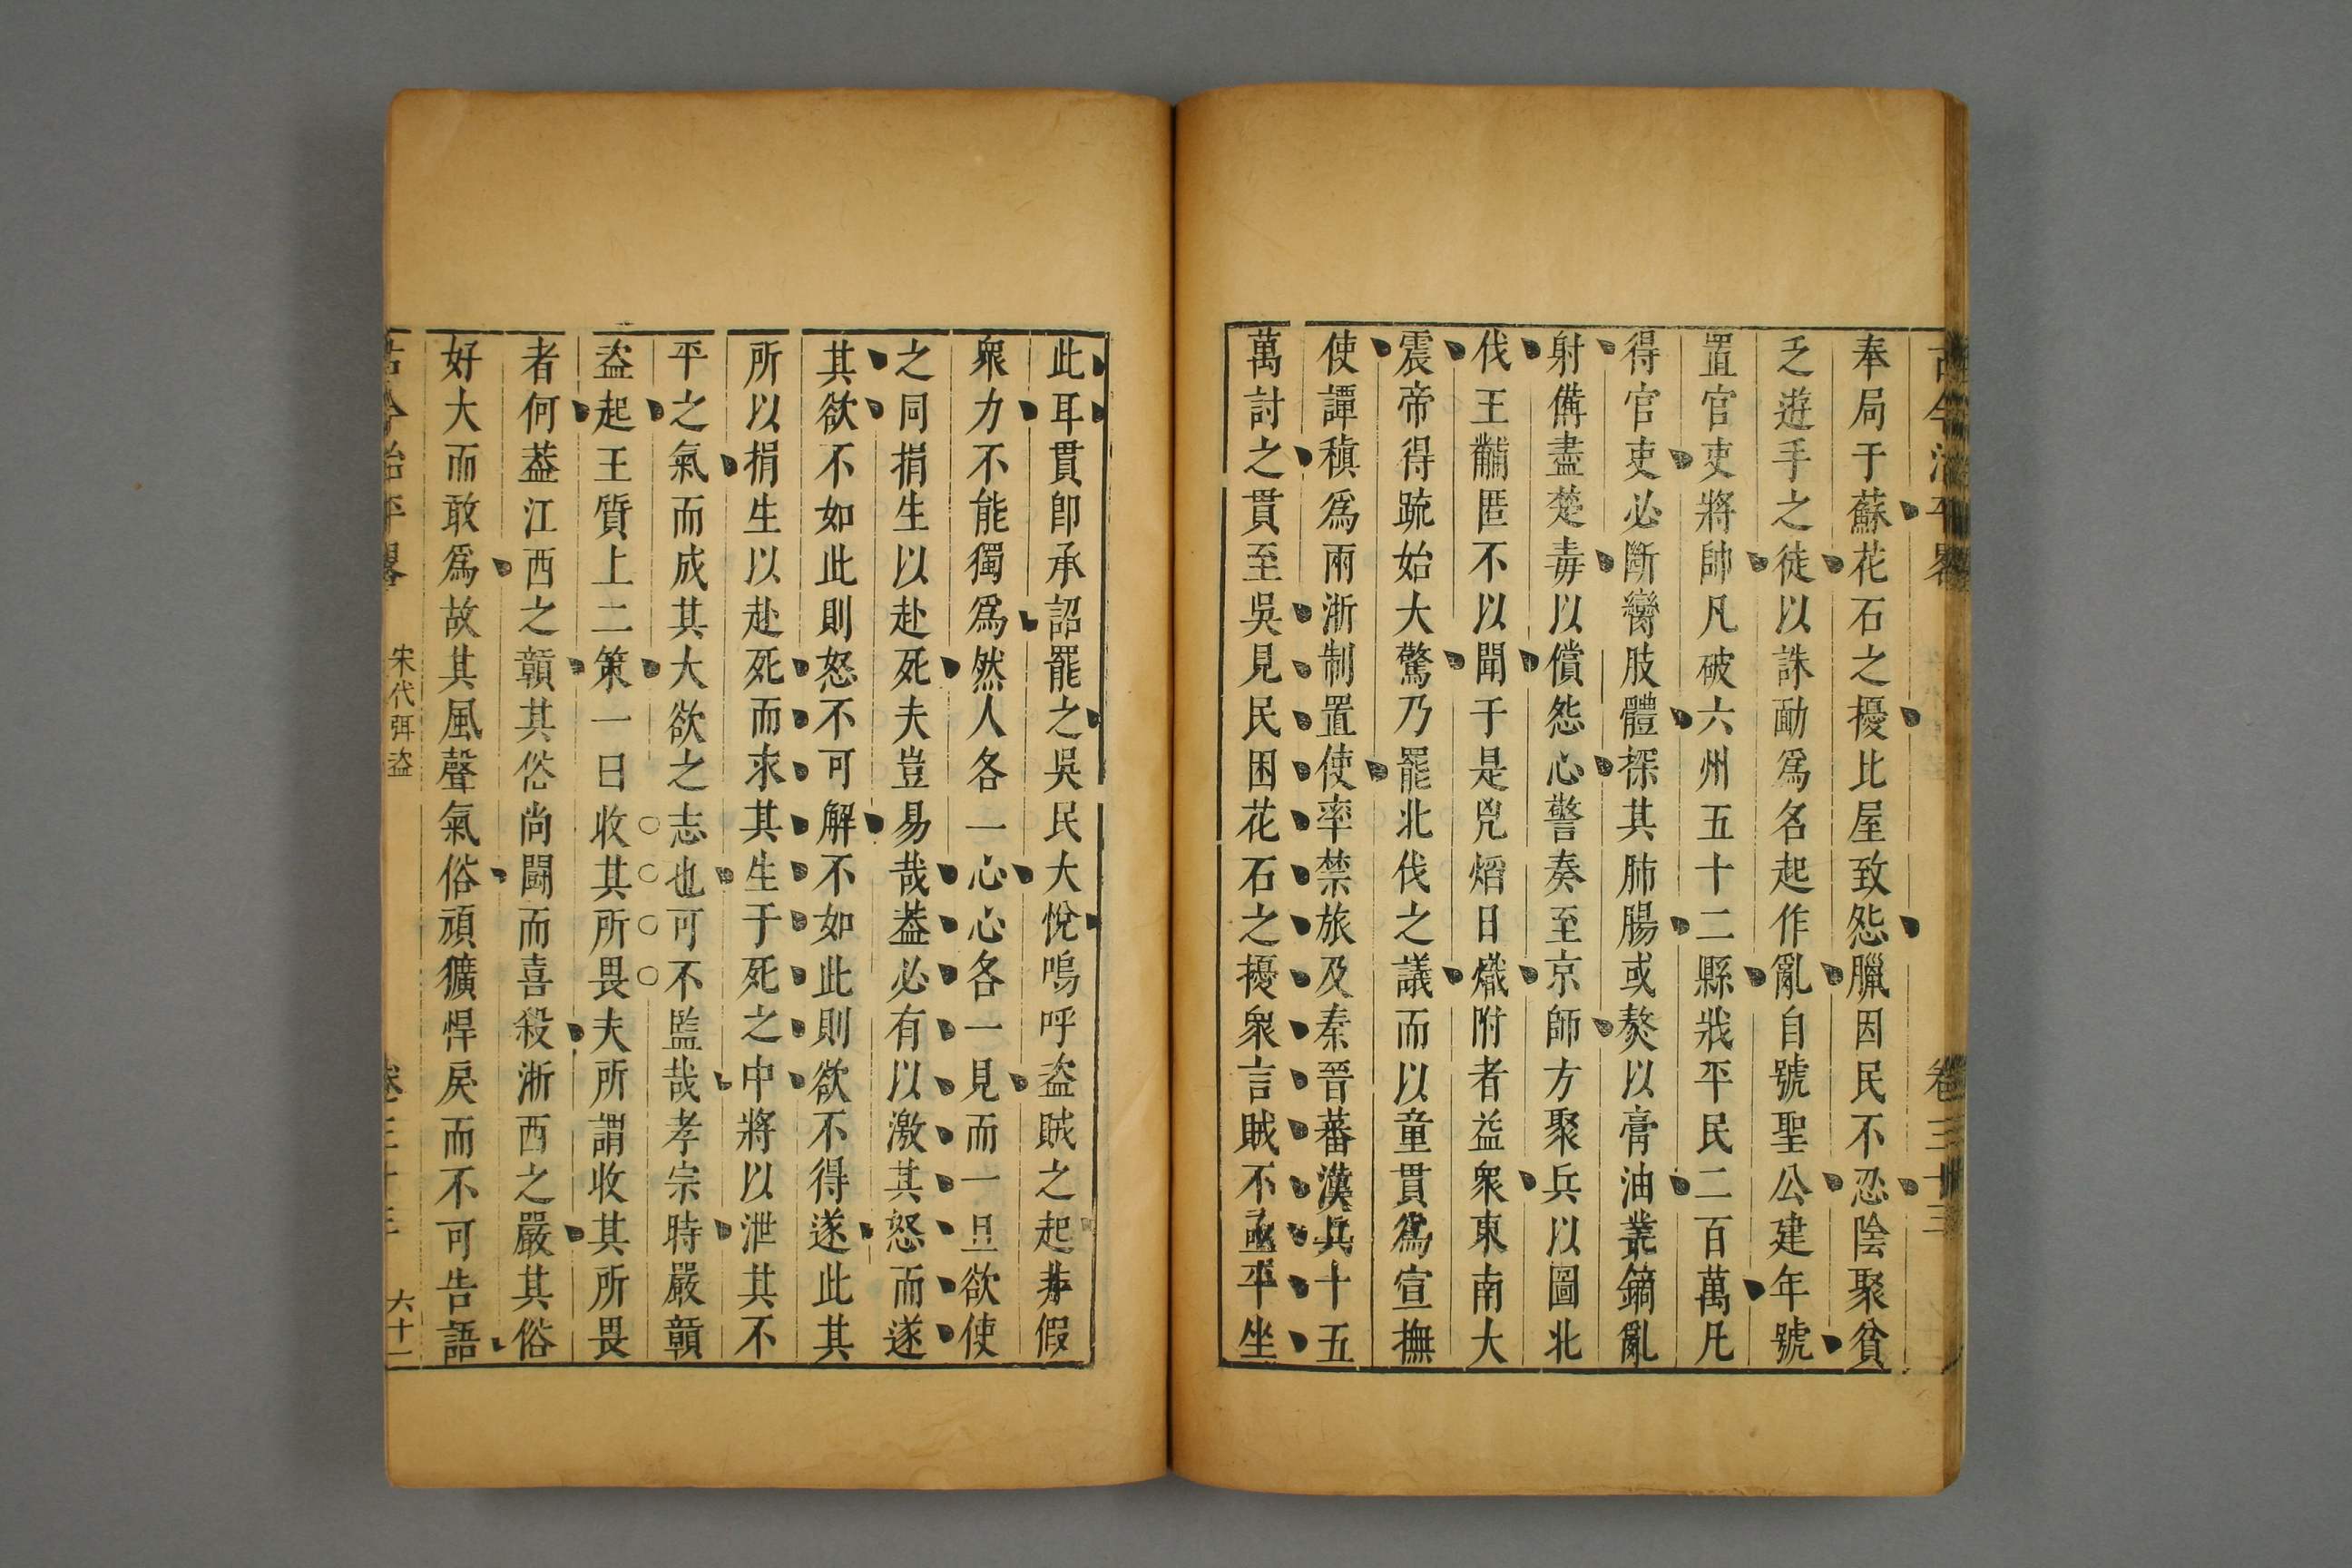 奉局于蘇花石之擾比屋致怨臘因民不忍陰聚貧
乏遊手之徒以誅勔爲名起作亂自號聖公建年號
置官吏將帥凡破六州五十二縣戕平民二百萬凡
得官吏必斷臠肢體探其肺腸或熬以膏油叢鏑亂
射備盡楚毒以償怨心警奏至京師方聚兵以圖北
伐王黼匿不以聞于是兇熖日熾附者益衆東南大
震帝得疏始大驚乃罷北伐之議而以童貫爲宣撫
使譚稹爲兩浙制置使率禁旅及秦晉蕃漢兵十五
萬討之貫至吳見民困花石之擾衆言賊不亟平坐
此耳貫卽承詔罷之吳民大悅嗚呼盗賊之起非假
衆力不能獨爲然人各一心心各一見而一旦欲使
之同捐生以赴死夫豈易哉葢必有以激其怒而遂
其欲不如此則怒不可解不如此則欲不得遂此其
所以捐生以赴死而求其生于死之中將以泄其不
平之氣而成其大欲之志也可不監哉孝宗時嚴贑
盗起王質上二策一曰收其所畏夫所謂收其所畏
者何葢江西之贑其俗尚鬪而喜殺浙西之嚴其俗
好大而敢爲故其風聲氣俗頑獷悍戾而不可告語
宋代弭盗
六十一